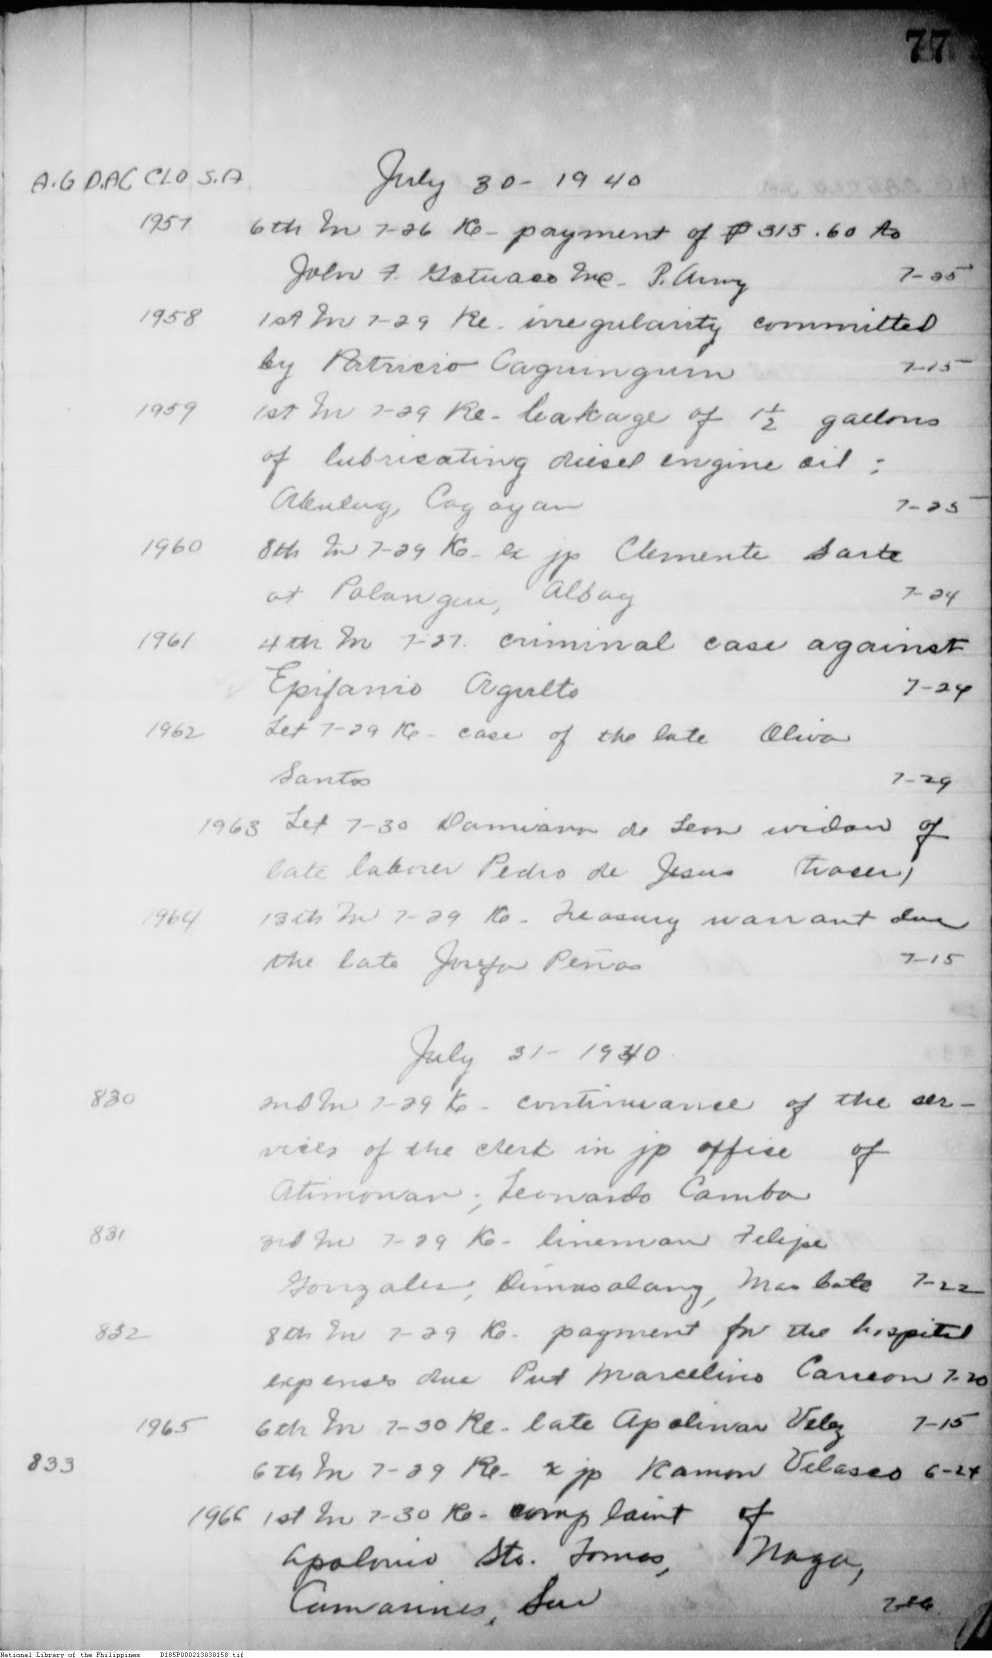 77
A.G D.AC CLO S.A. July 30-1940
1957 6th In 7-26 Re- payment of ₱315.60 to
John F. Gotuaco Inc. P. Army 7-25
1958 1st In 7-29 Re. irregularity committed
by Patricio Caguingum 7-15
1959 1st In 7-29 Re- leakage of 1 1/2 gallons
of lubricating diesel engine oil;
Abulug, Cagayan 7-23
1960 8th In 7-29 Re- ex jp Clemente Sarte
at Polangui, Albay 7-24
1961 4th In 7-27. criminal case against
Epifanio Agulto 7-24
1962 Let 7-29 Re- case of the late Oliva
Santos 7-29
1963 Let 7-30 Damiana de Leon widow of
late laborer Pedro de Jesus (tracer)
1964 13th In 7-29 Re- Treasury warrant due
the late Josefa Peñas 7-15
July 31-1940
830 2nd In 7-29 Re- continuance of the ser-
vices of the clerk in jp office of
Atimonan; Leonardo Camba
831 3rd In 7-29 Re- lineman Felipe
Gonzales; Dimasalang, Masbate 7-22
832 8th In 7-29 Re- payment for the hospital
expenses due Pvt Marcelino Carreon 7-20
1965 6th In 7-30 Re- late Apolinar Velez 7-15
833 6th In 7-29 Re- x jp Ramon Velasco 6-24
1966 1st In 7-30 Re- complaint of
Apolonio Sto. Tomas, Naga,
Camarines, Sur
National Library of the Philippines D185P000213030158.tif